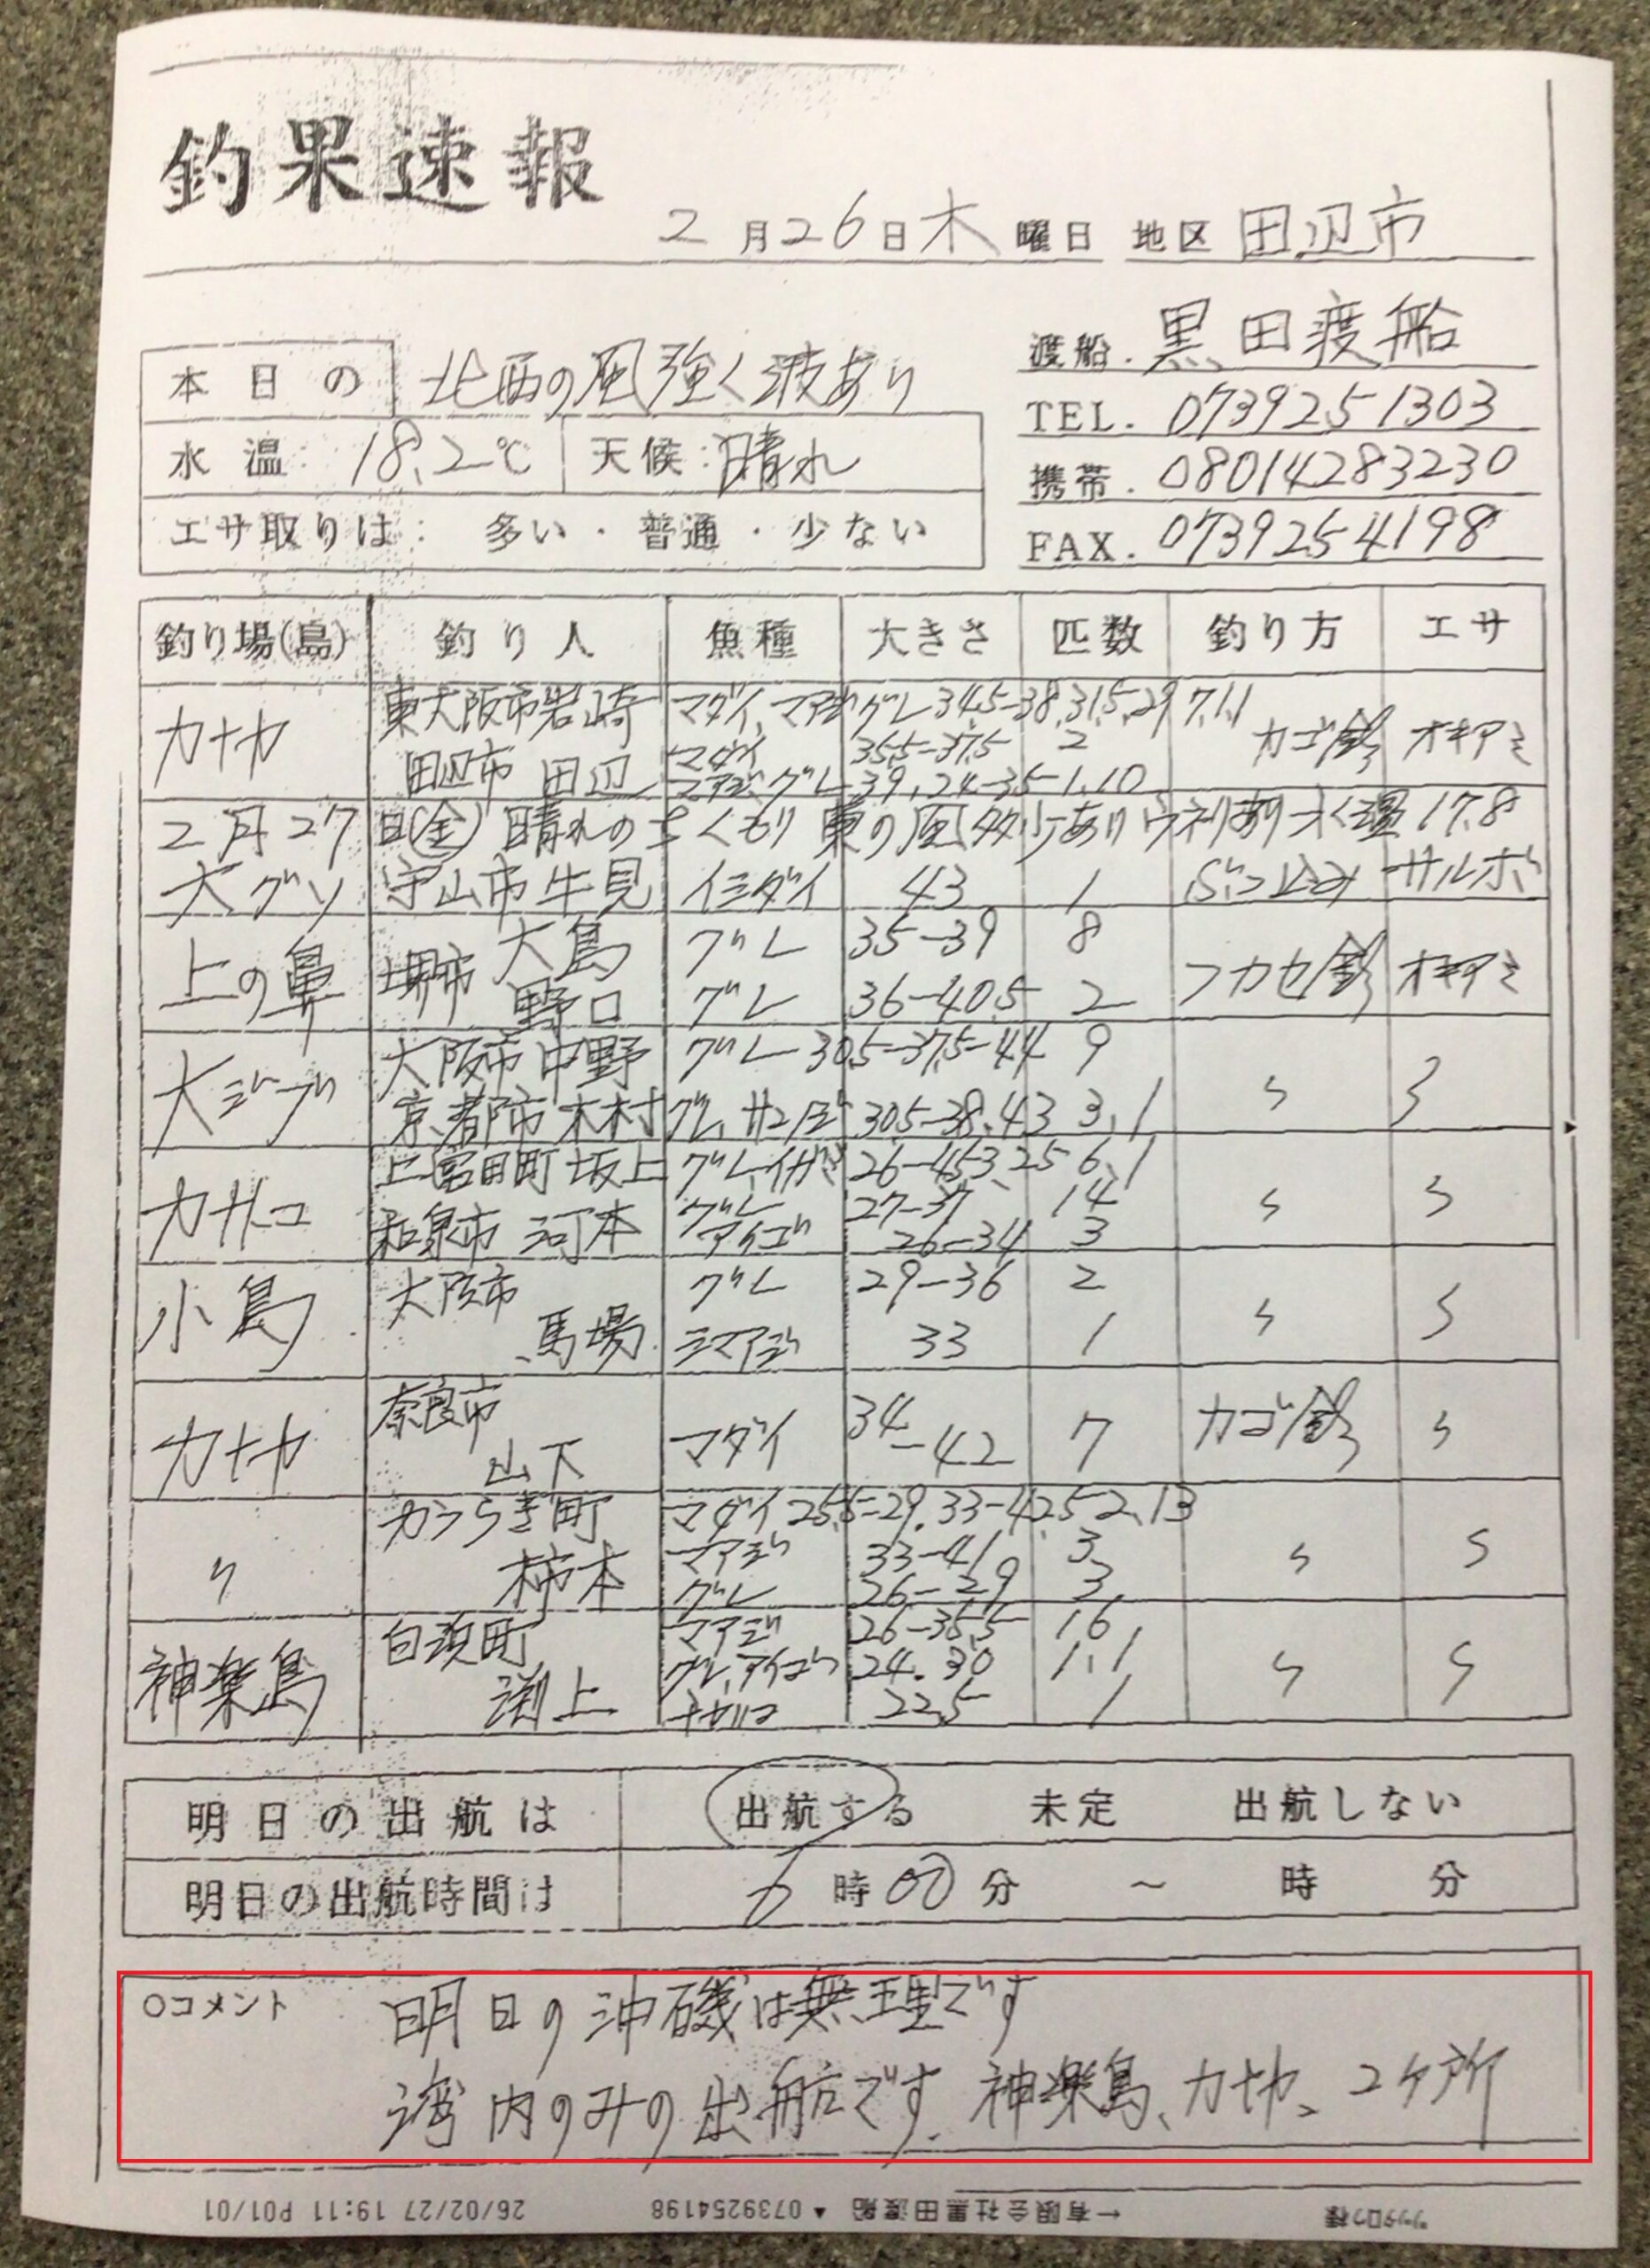 釣果速報
2月26日木曜日 地区 田辺市
本日の 北西の風強く波あり
渡船. 黒田渡船
TEL. 0739251303
水温: 18.2℃ 天候:晴れ
携帯. 08014283230
エサ取りは: 多い・普通・少ない
FAX. 0739254198
釣り場(島) 釣り人 魚種 大きさ 匹数 釣り方 エサ
カナカ 東大阪市岩崎 マダイ、マアジ、グレ 34.5-38.31.5.29 7.1.1 カゴ釣 オキアミ
田辺市 田辺 マダイ 35.5-37.5 2
マアジ、グレ 39.24-35 1.10
2月27日(金) 晴れのちくもり 東の風多少ありウネリあり 水温 17.8
大グソ 守山市 牛見 イシダイ 43 1 ぶっ込み サルボ
上の鼻 堺市 大島 グレ 35-39 8 フカセ釣 オキアミ
野口 グレ 36-40.5 2
大ジブ 大阪市 中野 グレ 30.5-37.5-44 9 〃 〃
京都市 木村 グレ、サンノジ 30.5-38.43 3.1
カサコ 上富田町 坂上 グレ、イガミ 26-45.3.25 6.1 〃 〃
和泉市 河本 グレ 27-37 14
アイゴ 26-34 3
小島 大阪市 グレ 29-36 2 〃 〃
馬場 シマアジ 33 1
カナカ 奈良市 山下 マダイ 34-42 7 カゴ釣 〃
〃 かつらぎ町 マダイ 25.5-29.33-42.5 2.13
柿本 マアジ 33-41 3 〃 〃
グレ 26-29 3
神楽島 白浜町 マアジ 26-35.5 16
渕上 グレ、アイゴ 24.30 1.1 〃 〃
22.5 1
明日の出航は 出航する 未定 出航しない
明日の出航時間は 6時00分 ~ 時 分
○コメント 明日の沖磯は無理です
湾内のみの出航です. 神楽島、カナカ、2ケ所
26/02/27 19:11 P01/01 0739254198 ▲ 有限会社黒田渡船←